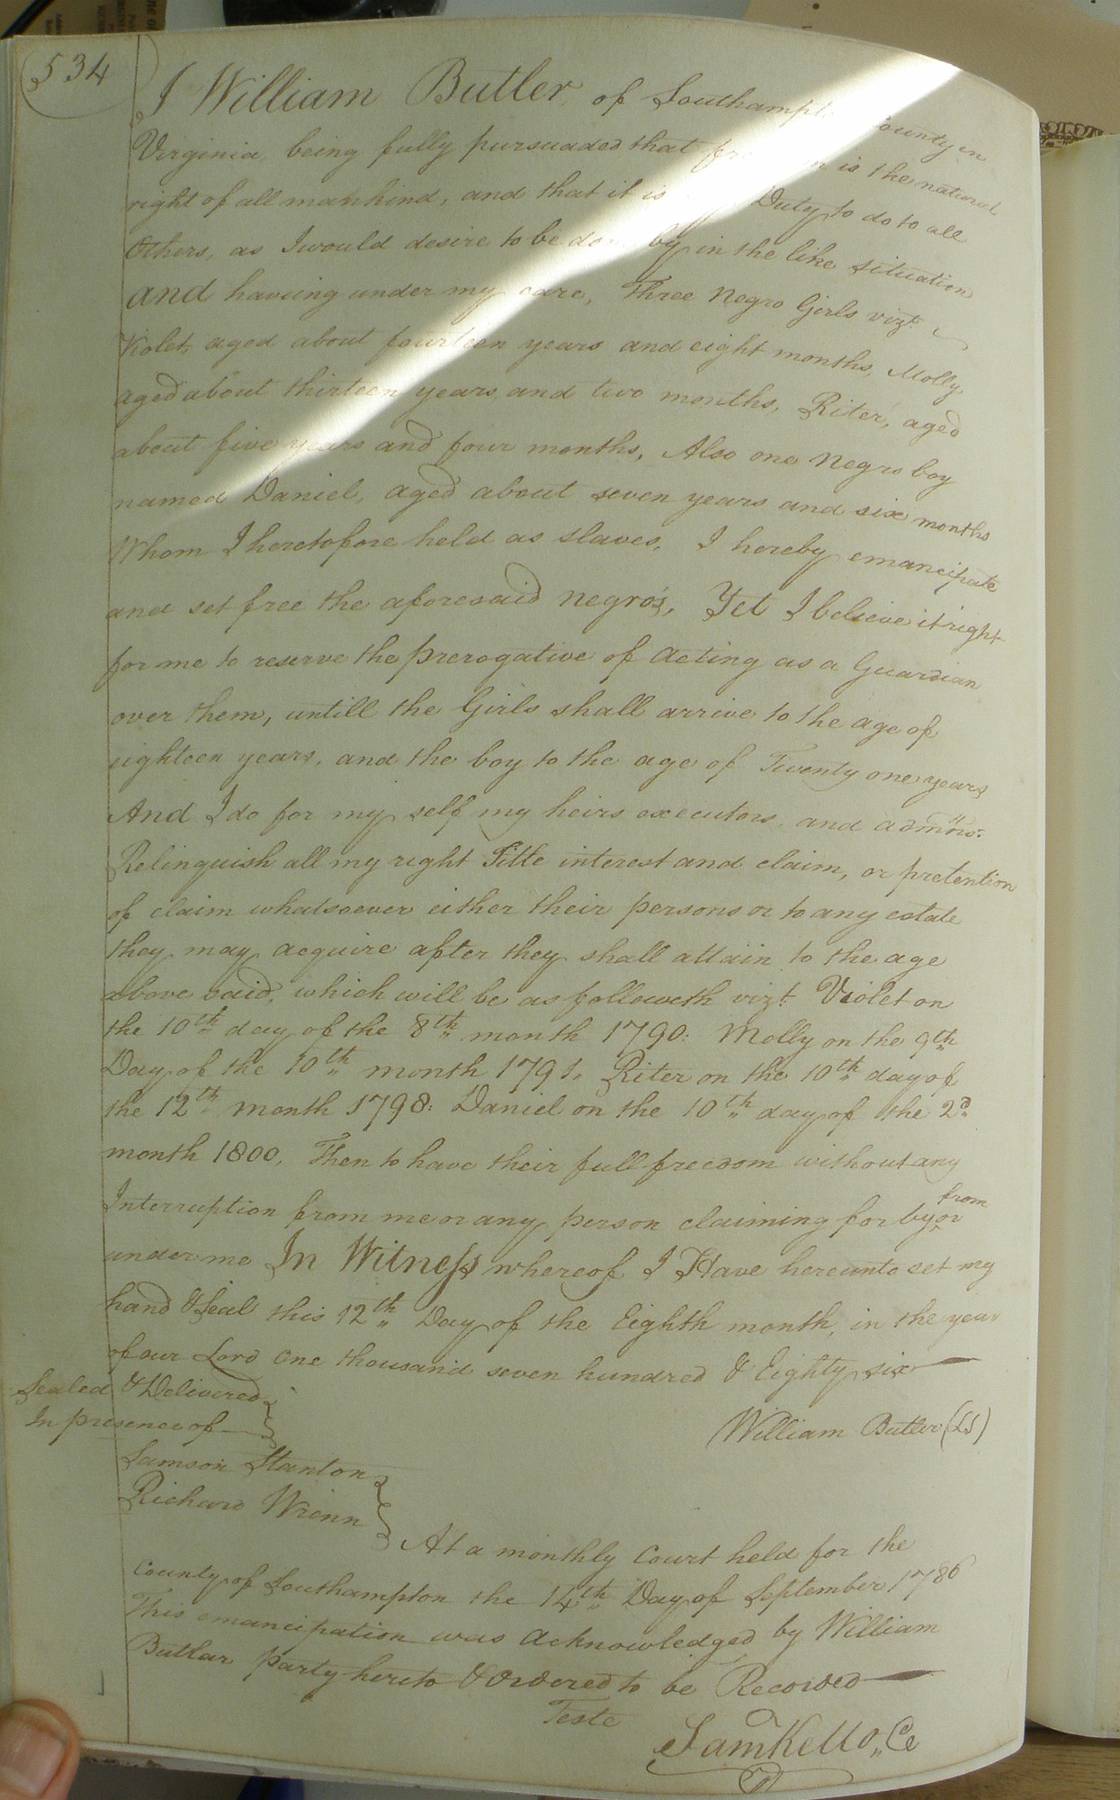 534
I William Butler of Southampt County in
Virginia, being fully pursuaded that fr n is the natural
right of all mankind, and that it is Duty to do to all
Others, as I would desire to be don by in the like situation
and haveing under my care, Three Negro Girls vizt.
Violet, aged about fourteen years and eight months, Molly
aged about thirteen years and two months, Riter, aged
about five years and four months, Also one Negro boy
named Daniel, aged about seven years and six months
Whom I heretofore held as slaves, I hereby emancipate
and set free the aforesaid negro's, Yet I believe it right
for me to reserve the prerogative of acting as a Guardian
over them, untill the Girls shall arrive to the age of
eighteen years, and the boy to the age of Twenty one years
And I do for my self my heirs executors and admors:
Relinquish all my right Title interest and claim, or pretention
of claim whatsoever either their persons or to any estate
they may acquire after they shall attain to the age
above said, which will be as followeth vizt. Violet on
the 10th day of the 8th month 1790: Molly on the 9th
Day of the 10th month 1791. Riter on the 10th day of
the 12th month 1798: Daniel on the 10th day of the 2d
month 1800, Then to have their full freedom without any
Interruption from me or any person claiming for by from or
under me In Witness whereof I Have hereunto set my
hand & Seal this 12th Day of the Eighth month, in the year
of our Lord One thousand seven hundred & Eighty six
Sealed & Delivered
In presence of
William Butler (LS)
Samson Stanton
Richard Wrenn
At a monthly Court held for the
County of Southampton the 14th Day of September 1786
This emancipation was acknowledged by William
Butlar party hereto & Ordered to be Recorded
Teste
Saml Kello, Cc